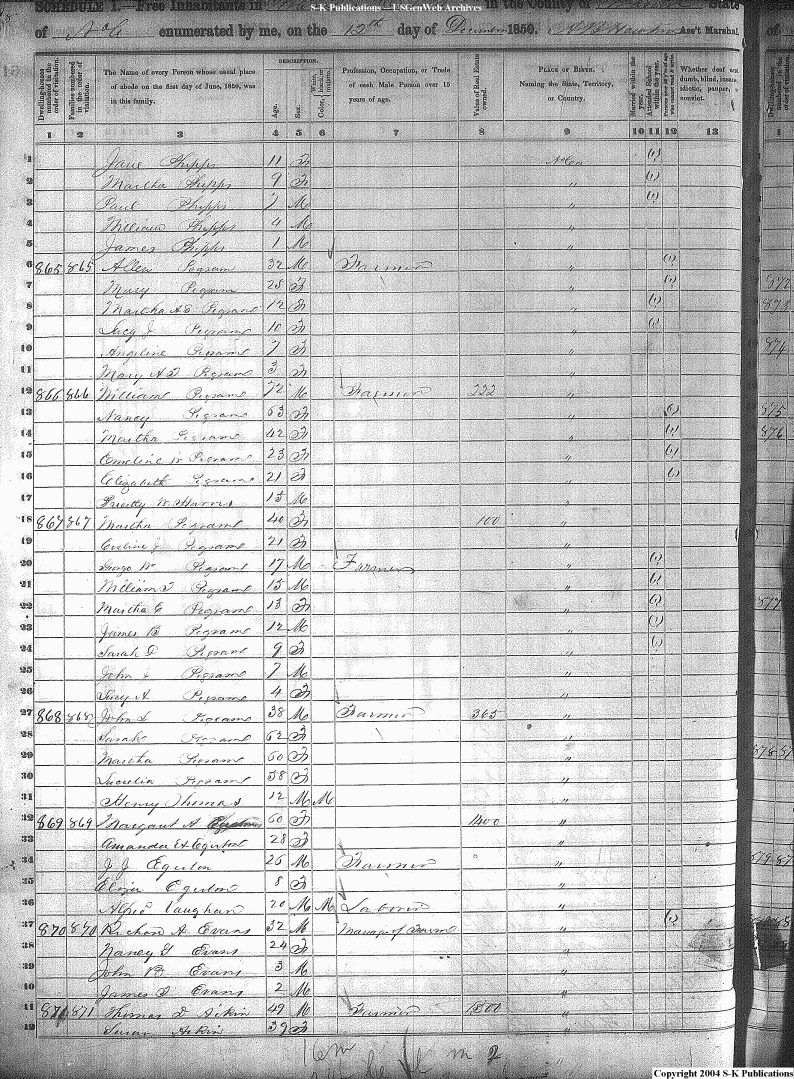 S-K Publications — USGenWeb Archives
SCHEDULE I.—Free Inhabitants in in the County of State
of No Ca enumerated by me, on the 13th day of December 1850. Ass't Marshal
Dwelling-houses numbered in the order of visitation.
Families numbered in the order of visitation.
The Name of every Person whose usual place of abode on the first day of June, 1850, was in this family.
DESCRIPTION.
Age.
Sex.
White, Color, black, or mulatto.
Profession, Occupation, or Trade of each Male Person over 15 years of age.
Value of Real Estate owned.
PLACE OF BIRTH. Naming the State, Territory, or Country.
Married within the year.
Attended School within the year.
Whether deaf and dumb, blind, insane, idiotic, pauper, or convict.
1 2 3 4 5 6 7 8 9 10 11 12 13
1 Jane Phipps 11 F (1)
2 Martha Phipps 9 F " (1)
3 Paul Phipps 7 M " (1)
4 William Phipps 4 M "
5 James Phipps 1 M "
6 865 865 Allen Pegram 32 M Farmer " (1)
7 Mary Pegram 25 F " (1)
8 Martha Pegram 12 F " (1)
9 Lucy J Pegram 10 F " (1)
10 Angeline Pegram 7 F "
11 Mary A Pegram 3 F "
12 866 866 William Pegram 72 M Farmer 222 "
13 Nancy Pegram 63 F " (1)
14 Martha Pegram 42 F " (1)
15 Emeline Pegram 23 F " (1)
16 Elizabeth Pegram 21 F " (1)
17 W Harris 13 M "
18 867 867 Martha Pegram 40 F 100 "
19 Eveline J Pegram 21 F "
20 George W Pegram 17 M Farmer " (1)
21 William T Pegram 15 M " (1)
22 Martha E Pegram 13 F " (1)
23 James B Pegram 12 M " (1)
24 Sarah D Pegram 9 F " (1)
25 John Pegram 7 M "
26 Lucy A Pegram 4 F "
27 868 868 John Pegram 38 M Farmer 365 "
28 Sarah Pegram 62 F "
29 Martha Pegram 60 F "
30 Lucretia Pegram 58 F "
31 Henry Thomas 12 M M "
32 869 869 Margaret A 60 F 1400 "
33 Amanda H Egerton 28 F "
34 J J Egerton 26 M Farmer "
35 Eliza Egerton 8 F "
36 Vaughan 20 M M Laborer "
37 870 870 Richard A Evans 32 M Manager of Farm " (1)
38 Nancy G Evans 24 F "
39 John B Evans 3 M "
40 James Evans 2 M "
41 871 871 Thomas D Aikin 49 M Farmer 1500 "
42 Susan Aikin 39 F "
Copyright 2004 S-K Publications